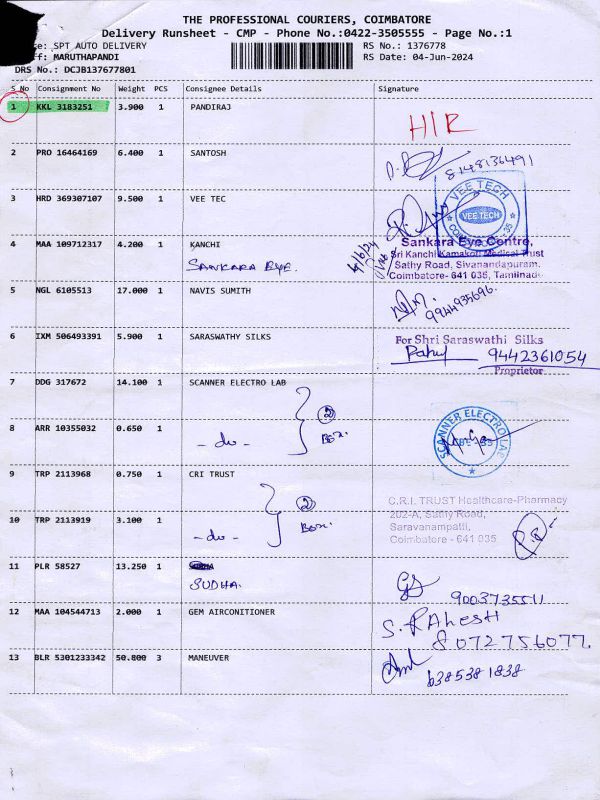 THE PROFESSIONAL COURIERS, COIMBATORE
Delivery Runsheet - CMP - Phone No.:0422-3505555 - Page No.:1
e: SPT AUTO DELIVERY
RS No.: 1376778
ff: MARUTHAPANDI
RS Date: 04-Jun-2024
DRS No.: DCJB137677801
S No Consignment No Weight PCS Consignee Details Signature
1 KKL 3183251 3.900 1 PANDIRAJ
H/R
2 PRO 16464169 6.400 1 SANTOSH
8148136491
3 HRD 369307107 9.500 1 VEE TEC
VEE TECH
VEE TECH
4 MAA 109712317 4.200 1 KANCHI
SANKARA EYE.
4/6/24
Sankara Eye Centre,
Sri Kanchi Kamakoti Medical Trust
Sathy Road, Sivanandapuram,
Coimbatore- 641 035, Tamilnadu
5 NGL 6105513 17.000 1 NAVIS SUMITH
9944935696.
6 IXM 506493391 5.900 1 SARASWATHY SILKS
For Shri Saraswathi Silks
Rahul 9442361054
Proprietor
7 DDG 317672 14.100 1 SCANNER ELECTRO LAB
2 Box.
8 ARR 10355032 0.650 1
- do -
SCANNER ELECTRO LAB
CBE-35
9 TRP 2113968 0.750 1 CRI TRUST
2 Box.
C.R.I. TRUST Healthcare-Pharmacy
202-A, Sathy Road,
Saravanampatti,
Coimbatore - 641 035
10 TRP 2113919 3.100 1
- do -
11 PLR 58527 13.250 1
SUDHA.
9003735511
12 MAA 104544713 2.000 1 GEM AIRCONITIONER
S. RAhESH
8072756077.
13 BLR 5301233342 50.800 3 MANEUVER
6385381838